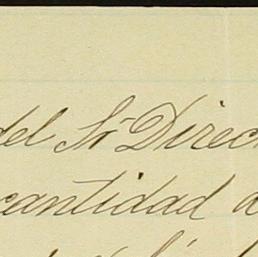 del Sr Direc
cantidad d